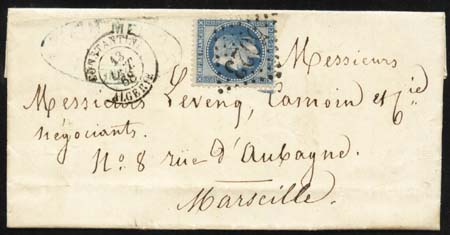 ME
CONSTANTINE
ALGERIE
68
Messieurs
Messieurs Levenq, Camoin et Cie
négociants.
No. 8 rüe d'Aubagne.
Marseille.